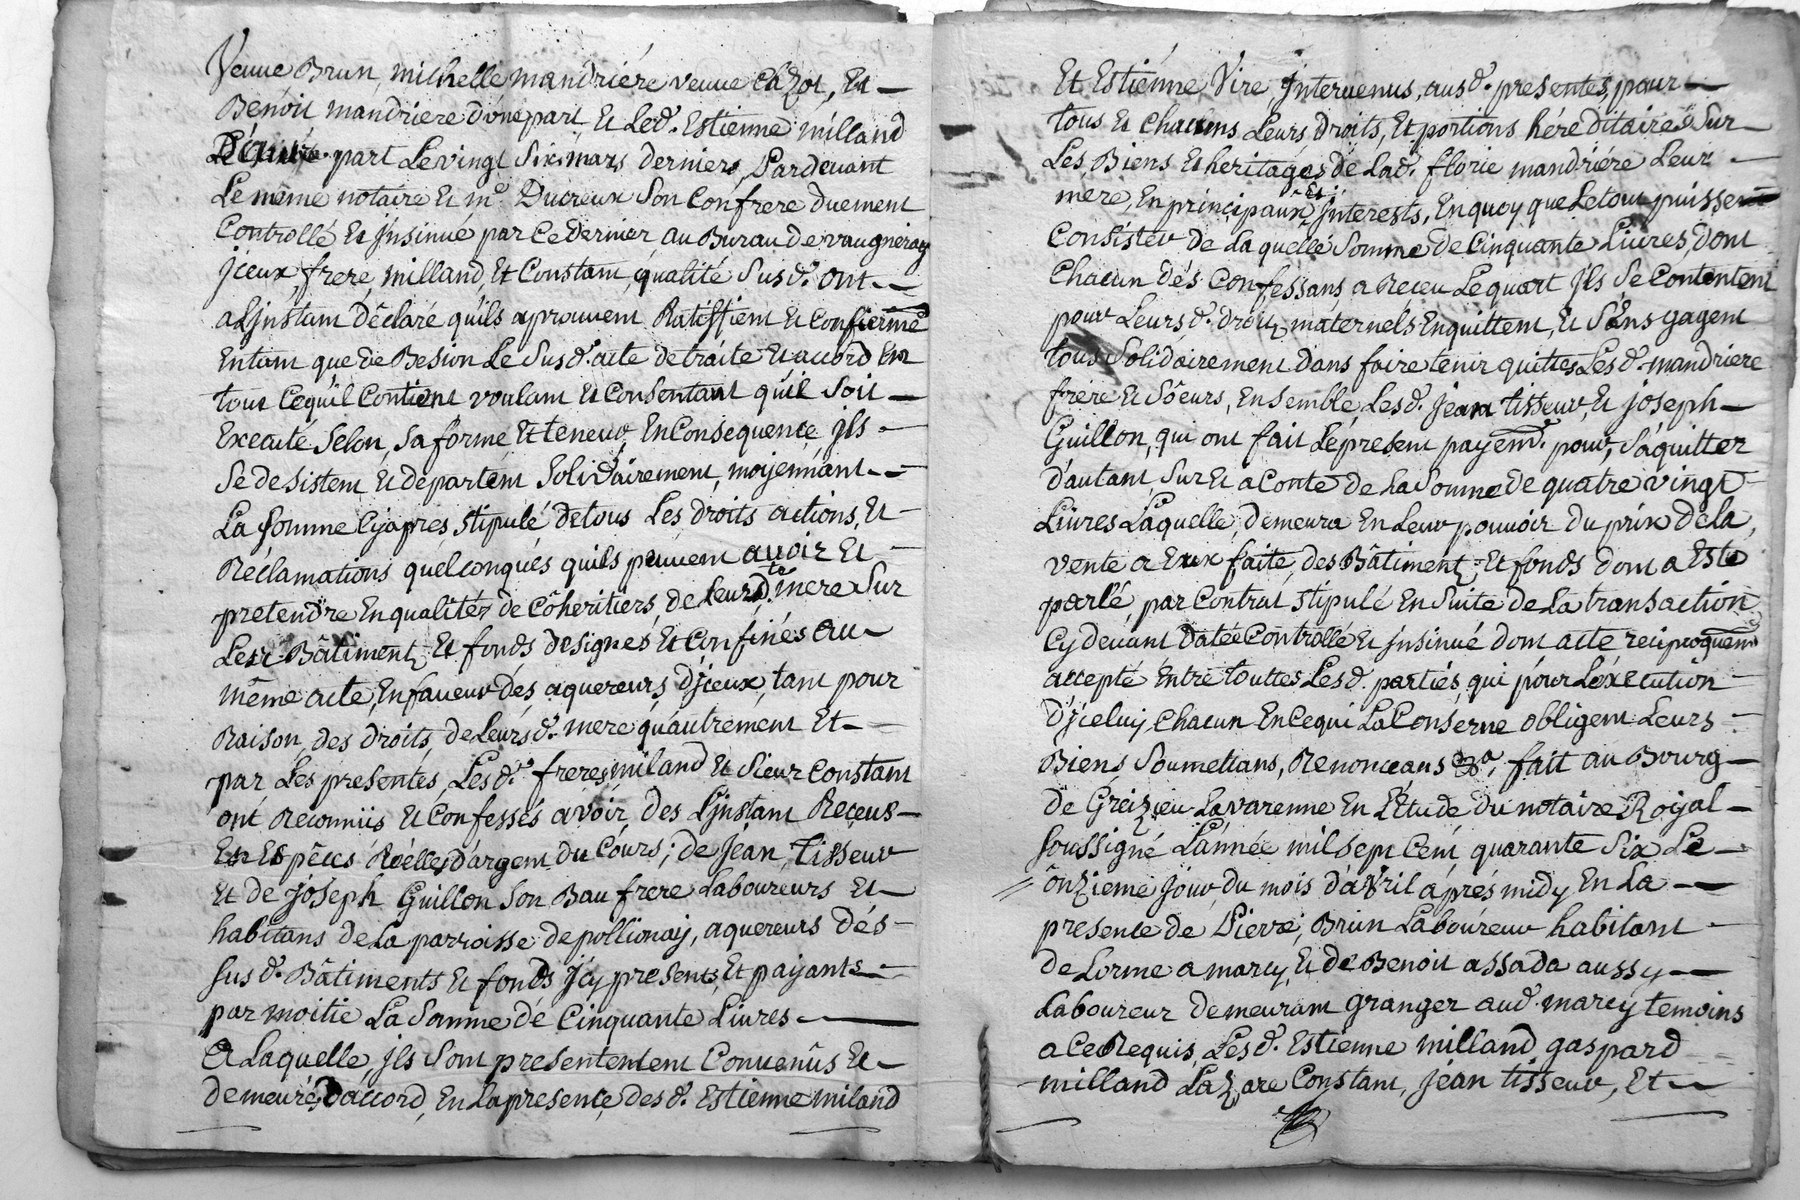 Veuve Brun, michelle mandriére veuve Chazot, Et
Benoit mandriere d'une part Et Led. Estienne milland
D'autre part Le vingt six mars dernier, Pardevant
Le même notaire Et me. Ducreux Son Confrere duement
Controllé Et jnsinué par Ce dernier au Bureau de vaugneray
jceux, frere, milland, Et Constam, qualité Susd. ont
a Ljnstam Déclaré qu'ils aprouvem Ratiffiem Et Confierme
Entam que de Besion Le Susd. acte detraité Et accord En
tout Cequ'il Contient voulam Et Consentant qu'il Soit
Executé Selon, Sa forme Et teneur, En Consequence jls
Se desistem Et departem Solidairement, moyennant
La Somme Cyapres Stipulé detous Les droits actions, Et
Réclamations quélconqués quils peuvem avoir Et
pretendre En qualités de Côheritiers de Leurd. mere Sur
Lesr. Bâtiment, Et fonds designés Et Confinés au
même acte, En faveur dés aquereurs d'jceux, tam pour
Raison, des droits, de Leursd. mere qu'autrement Et
par Les presentes, Lesd. freres miland Et Sieur Constam
ont Reconnüs Et Confessés avoir, des Ljnstam Reçeus
En Espêces Réelles d'argem du Cours; de Jean, Tisseur
Et de joseph Guillon Son Bau frere Laboureurs Et
habitans de La parroisse de pollionay, aquereurs dés
susd. Bâtiments Et fonds jcy presents, Et payants
par moitie La Somme dé Cinquante Livres
A Laquelle, jls Sont presentement Convenûs Et
demeurés D'accord, En La presençe desd. Estienne miland
Et Estienne Vire jntervenus, ausd. presentes, pour
tous Et Chacuns Leurs Droits, Et portions héréditaires Sur
Les Biens Et heritages de Lad. florie mandriére Leur
mere, En principaux Et jnterests, En quoy que Le tout puissent
Consister de Laquelle Somme de Cinquante Livres, dont
Chacun dés Confessans a Reçeu Le quart jls Se Contentent
pour Leursd. droits maternels Enquittem, Et S'éns gagem
tous Solidairement dans faire tenir quittes Lesd. mandriere
frere Et Sôeurs, Ensemble Lesd. Jean tisseur, Et joseph
Guillon, qui ont fait Lépresent payemt. pour, S'aquitter
d'autant, Sur Et a Conte de La Somme de quatre vingt
Livres Laquelle, demeura En Leur pouvoir du prix de La
vente a Eux faite, des Bâtiment, Et fonds dont a Esté
parlé par Contrat Stipulé En Suite de La transaction
Cy devant Datée Controllé Et jnsinué dont acte reciproquemt
accepté Entre touttes Lesd. partiés, qui pour Léxecution
d'jceluy Chacun En Cequi La Conserne obligem Leurs
Biens Soumettans, Renonceans &a, fait au Bourg
de Greizieu Lavarenne En L'Étude du notaire Royal
Soussigné L'année mil Sept Cent quarante Six Le
ônzieme jour du mois d'avril aprés midy En La
presence de Pierre, Brun Laboureur habitant
de Lorme a marcy, Et de Benoit assada aussy
Laboureur demeurant granger aud. marcy temoins
a Ce Requis, Lesd. Estienne milland gaspard
milland Lazare Constant, Jean tisseur, Et